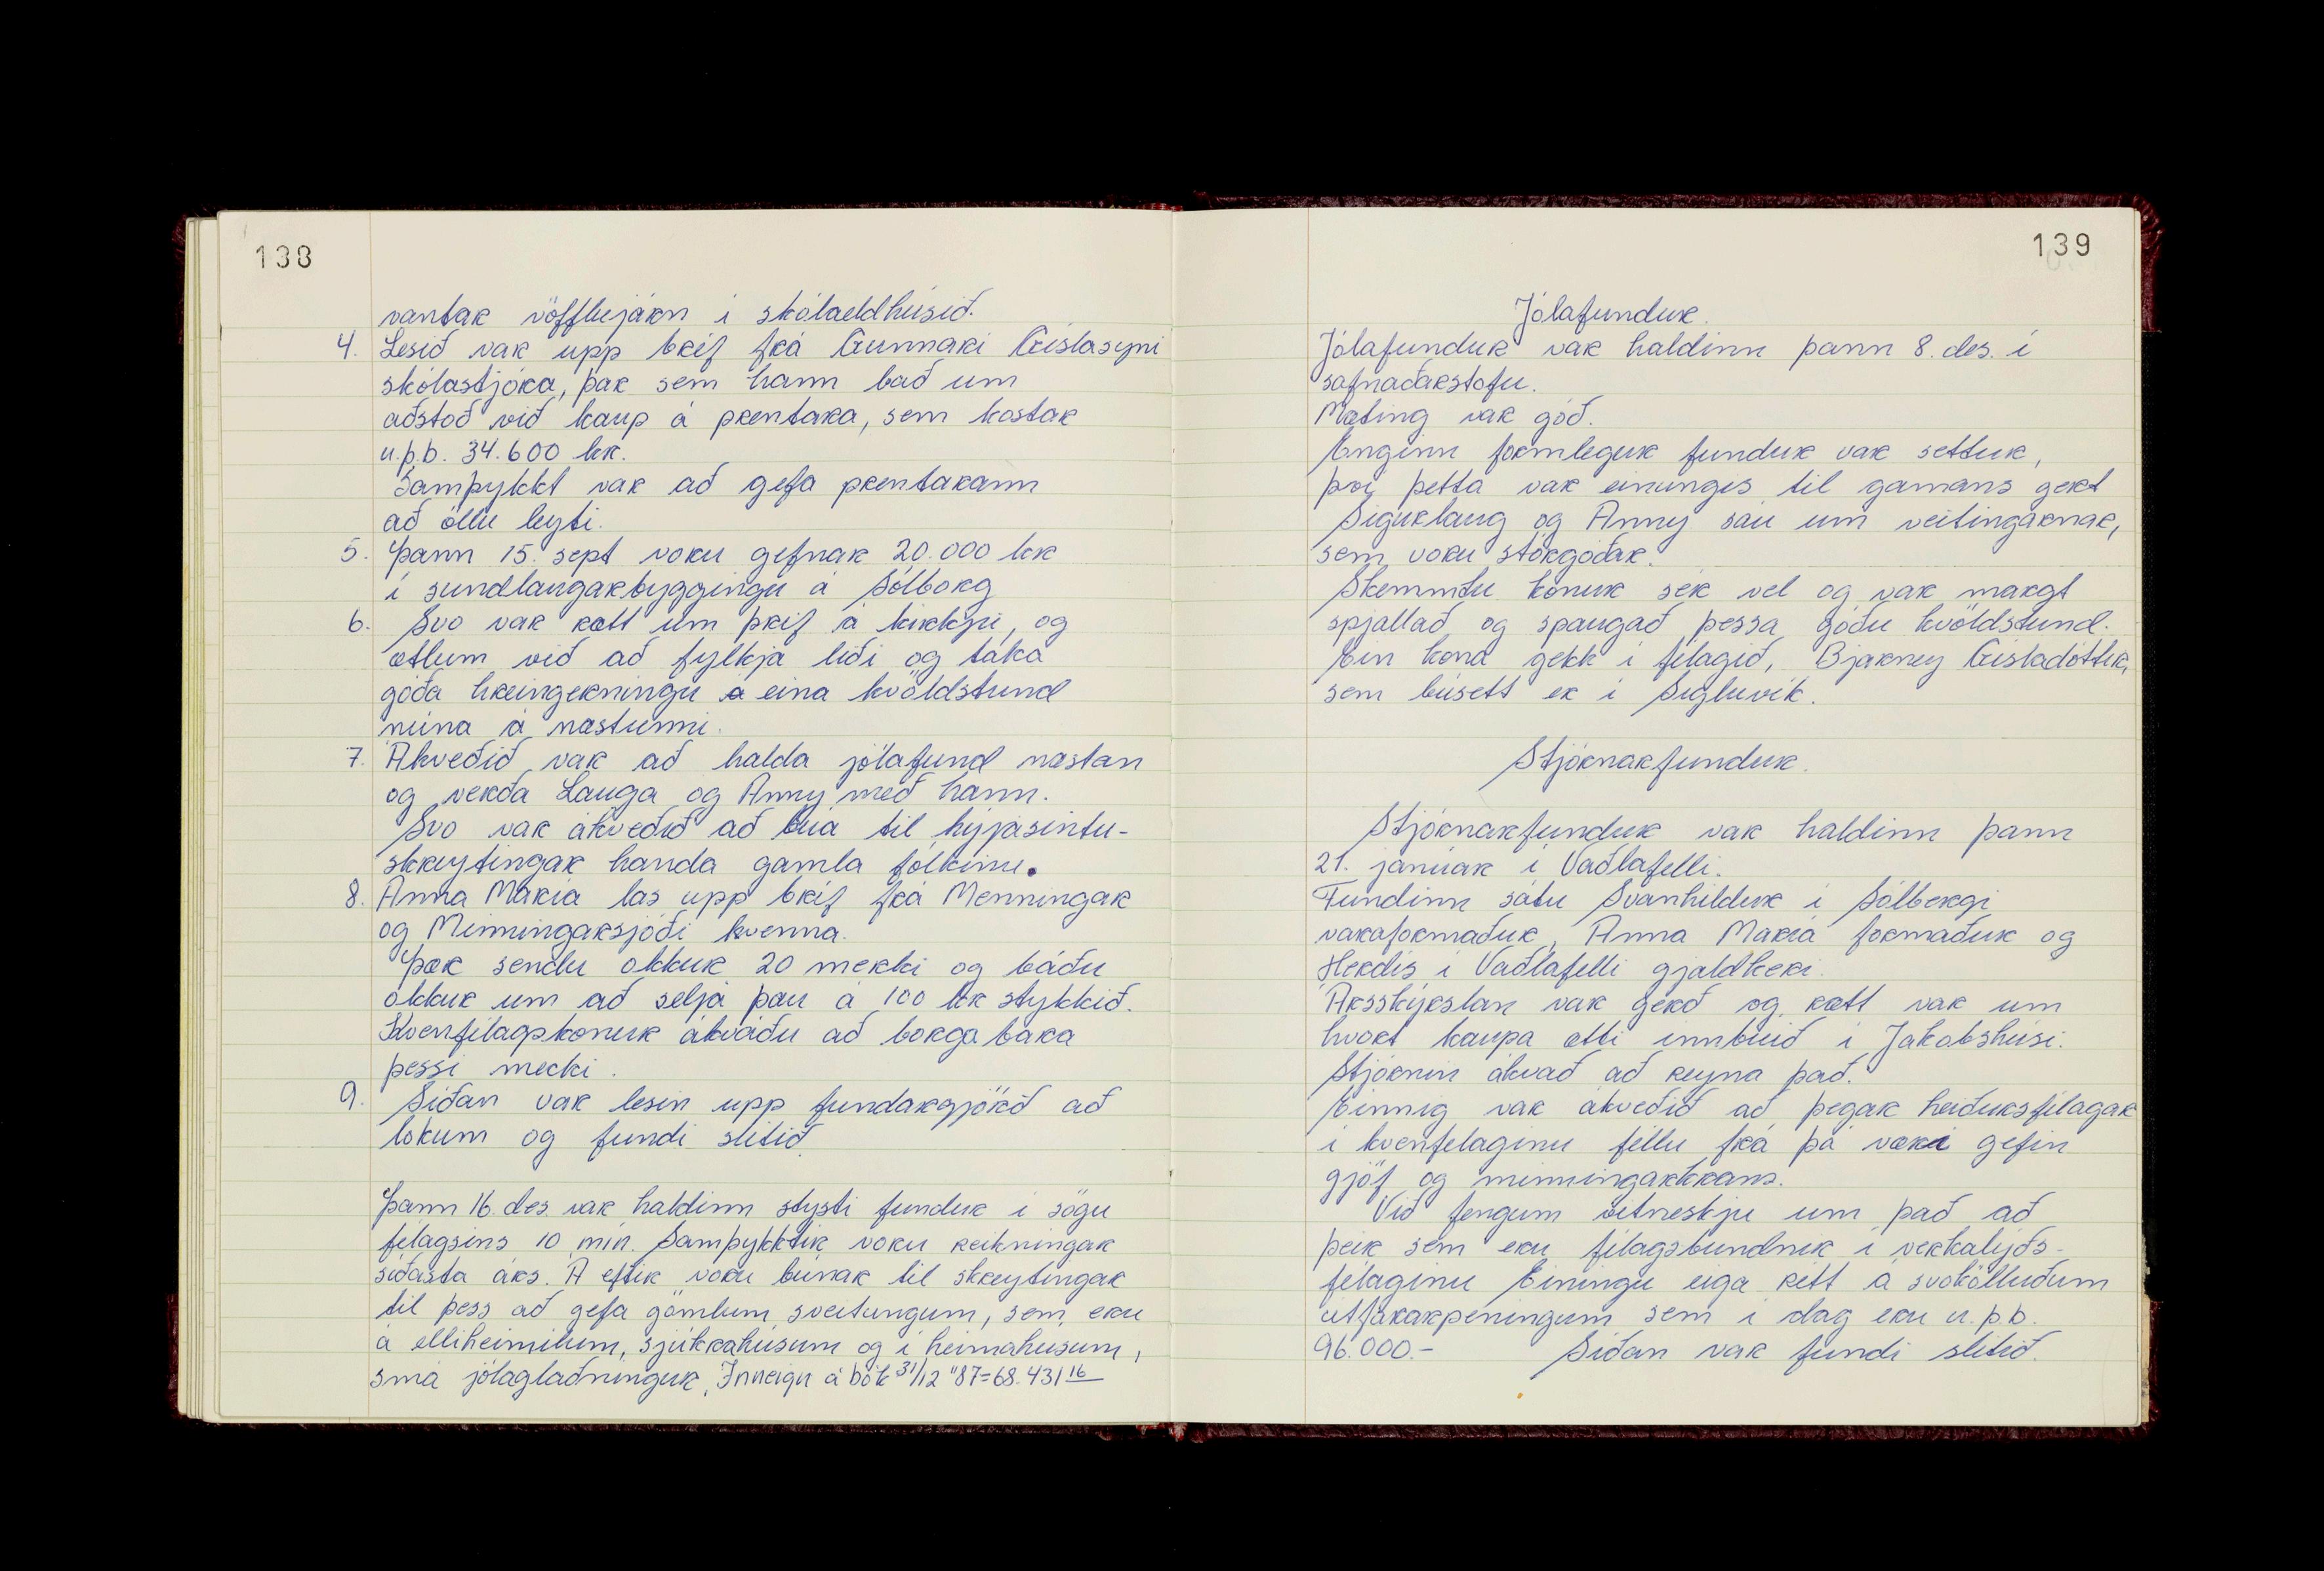 138
vantar vöfflujárn í skólaeldhúsið.
4. Lesið var upp bréf frá Gunnari Gíslasyni
skólastjóra, þar sem hann bað um
aðstoð við kaup á prentara, sem kostar
u.þ.b. 34.600 kr.
Samþykkt var að gefa prentarann
að öllu leyti.
5. Þann 15. sept voru gefnar 20.000 kr
í sundlaugarbyggingu á Sólborg
6. Svo var rætt um þrif á kirkju, og
ætlum við að fylkja liði og taka
góða hreingerningu á eina kvöldstund
núna á næstunni.
7. Ákveðið var að halda jólafund næstan
og verða Lauga og Anny með hann.
Svo var ákveðið að búa til hýjasintu-
skreytingar handa gamla fólkinu.
8. Anna María las upp bréf frá Menningar
og Minningarsjóði kvenna.
Þær sendu okkur 20 merki og báðu
okkur um að selja þau á 100 kr stykkið.
Kvenfélagskonur ákváðu að borga bara
þessi merki.
9. Síðan var lesin upp fundargjörð að
lokum og fundi slitið.
Þann 16. des. var haldinn stysti fundur í sögu
félagsins 10 mín. Samþykktir voru reikningar
síðasta árs. Á eftir voru búnar til skreytingar
til þess að gefa gömlum sveitungum, sem eru
á elliheimilum, sjúkrahúsum og í heimahúsum,
smá jólaglaðningur. Inneign á bók 31/12 "87=68.431 16
139
Jólafundur.
Jólafundur var haldinn þann 8. des. í
safnaðarstofu.
Mæting var góð.
Enginn formlegur fundur var settur,
því þetta var einungis til gamans gert
Sigurlaug og Anny sáu um veitingarnar,
sem voru stórgóðar.
Skemmtu konur sér vel og var margt
spjallað og spaugað þessa góðu kvöldstund.
Ein kona gekk í félagið, Bjarney Gísladóttir,
sem búsett er í Sigluvík.
Stjórnarfundur.
Stjórnarfundur var haldinn þann
21. janúar í Vaðlafelli.
Fundinn sátu Svanhildur í Sólbergi
varaformaður, Anna María formaður og
Herdís í Vaðlafelli gjaldkeri.
Ársskýrslan var gerð og rætt var um
hvort kaupa ætti innbúið í Jakobshúsi.
Stjórnin ákvað að reyna það.
Einnig var ákveðið að þegar heiðursfélagar
í kvenfélaginu féllu frá þá væri gefin
gjöf og minningarkrans.
Við fengum vitneskju um það að
þeir sem eru félagsbundnir í verkalýðs-
félaginu Einingu eiga rétt á svokölluðum
útfararpeningum sem í dag eru u.þ.b.
96.000.- Síðan var fundi slitið.